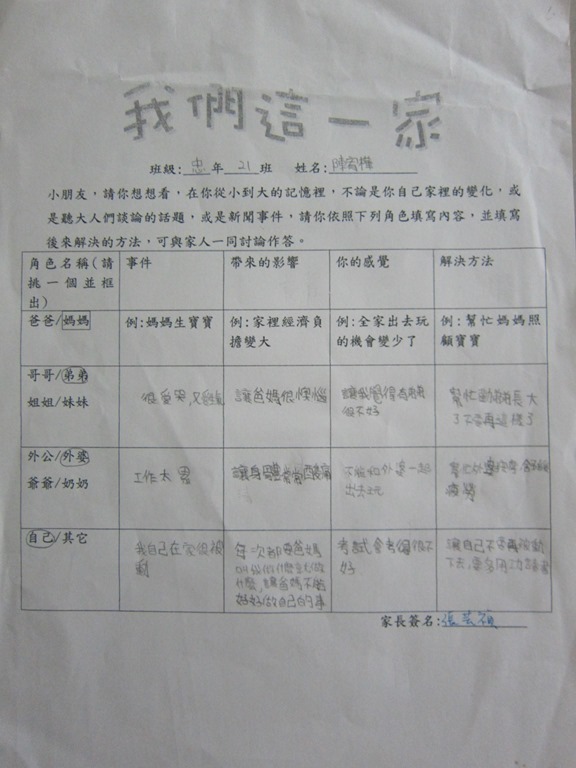 我們這一家
班級:忠年21班 姓名:陳宥樺
小朋友，請你想想看，在你從小到大的記憶裡，不論是你自己家裡的變化，或
是聽大人們談論的話題，或是新聞事件，請你依照下列角色填寫內容，並填寫
後來解決的方法，可與家人一同討論作答。
角色名稱(請
挑一個並框
出)
事件
帶來的影響
你的感覺
解決方法
爸爸/媽媽
例:媽媽生寶寶
例:家裡經濟負
擔變大
例:全家出去玩
的機會變少了
例:幫忙媽媽照
顧寶寶
哥哥/弟弟
姐姐/妹妹
很愛哭又
讓爸媽很懊惱
讓我覺得
很不好
幫忙 長大
了不會再這樣了
外公/外婆
爺爺/奶奶
工作太累
讓身體常常酸痛
不能和外婆一起
出去玩
幫忙外婆
疲勞
自己/其它
我自己在家很被
動
每次都要爸媽
叫我做什麼才做
什麼,讓爸媽不能
好好做自己的事
考試會考得很不
好
讓自己不會再被動
下去,要多用功讀書
家長簽名: